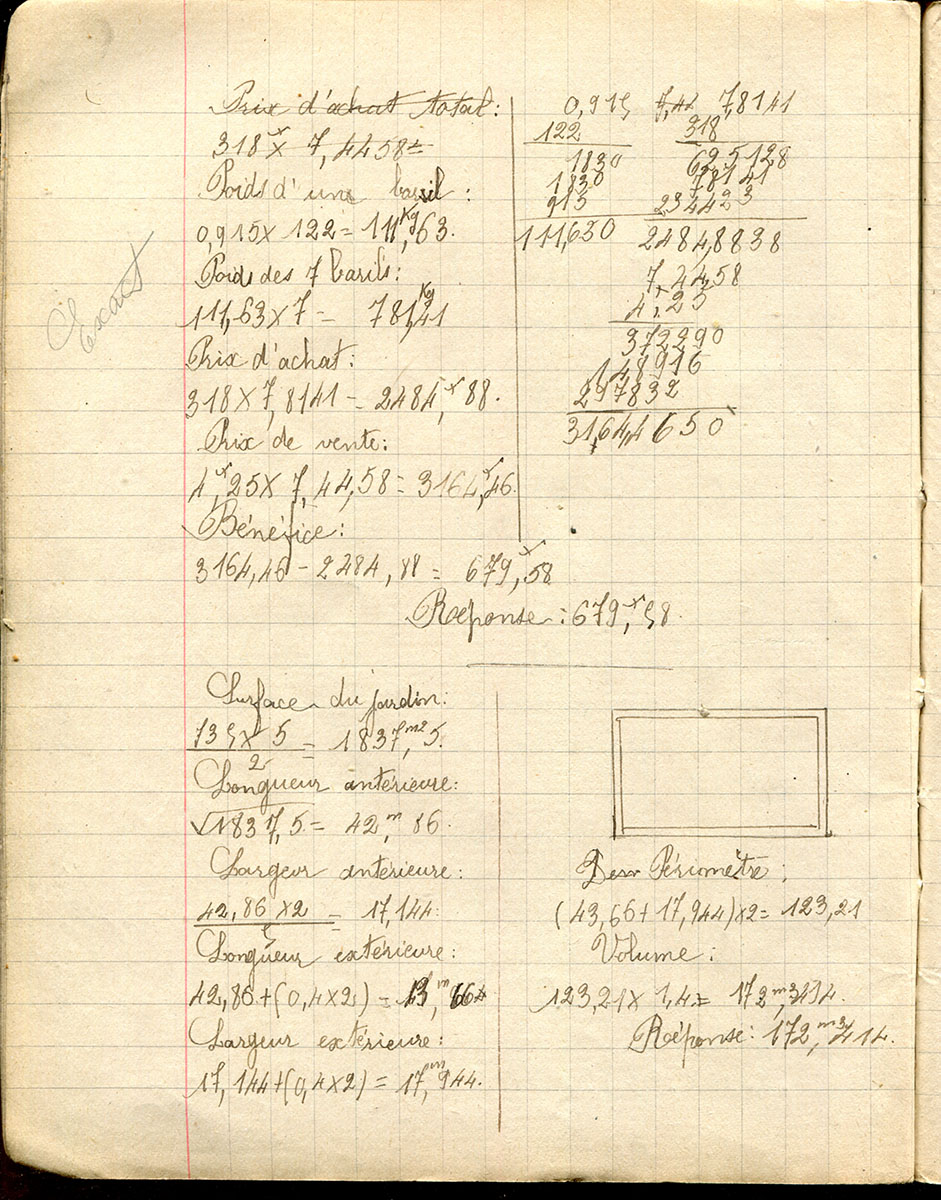 Prix d'achat total:
318 × 7,4458 =
Poids d'un baril :
0,915 × 122 = 111Kg,63.
Poids des 7 barils:
111,63 × 7 = 781Kg,41
Prix d'achat:
318 × 7,8141 = 2484,88.
Prix de vente:
4,25 × 7,44,58 = 3164,46.
Bénéfice:
3164,46 - 2484,88 = 679,58
Réponse : 679,58.
Exact
0,915
122
1830
1830
915
111,630
7,41 7,8141
318
625128
78141
234423
2484,8838
7,4458
4,25
372290
148916
297832
31,64,4650
Surface du jardin:
735 × 5 = 1837m2,5.
2
Longueur antérieure:
√1837,5 = 42,m 86.
Largeur antérieure:
42,86 × 2 = 17,144.
5
Longueur extérieure:
42,86 + (0,4 × 2) = 43,m 66
Largeur extérieure:
17,144 + (0,4 × 2) = 17,m944.
Périomètre :
(43,66 + 17,944) × 2 = 123,21
Volume :
123,21 × 1,4 = 172m3,414.
Réponse: 172,m3414.